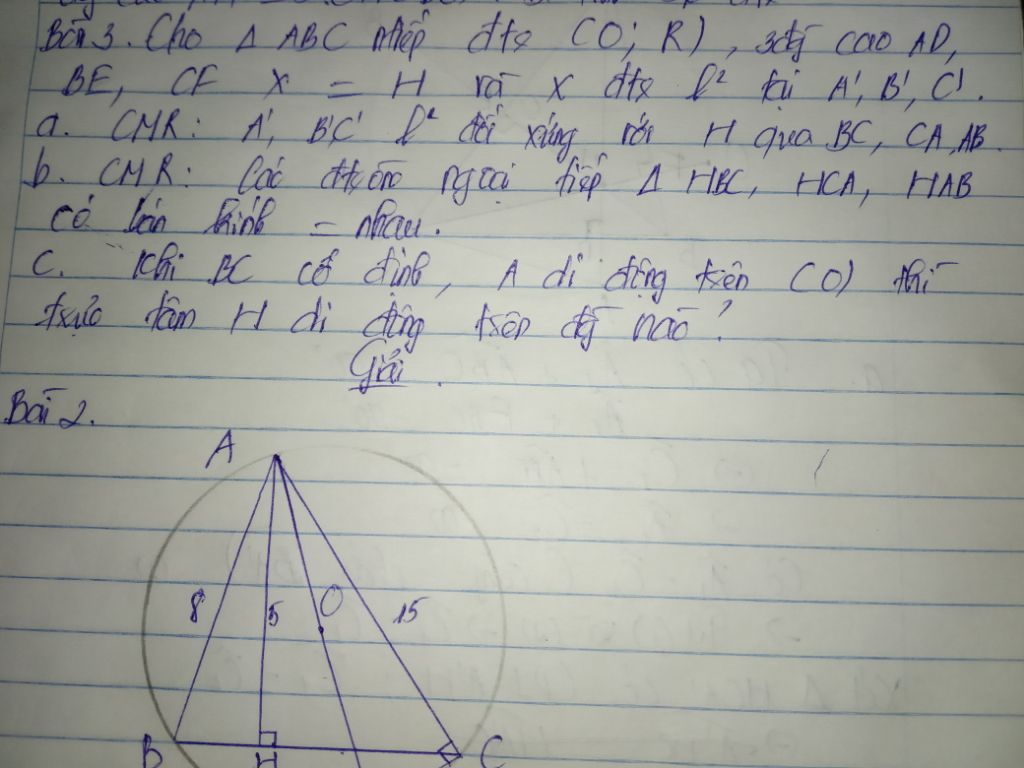 Bài 3. Cho Δ ABC nhtiếp đtr (O; R), 3 đg cao AD,
BE, CF X = H và X đtr l² tại A', B', C'.
a. CMR: A', B'C' l² đối xứng với H qua BC, CA, AB.
b. CMR: Các đtròn ngoại tiếp Δ HBC, HCA, HAB
có bán kính = nhau.
c. Khi BC cố định, A di động trên (O) thì
trực tâm H di động trên đg nào?
Giải.
Bài 2.
A
8 5 O 15
B H C